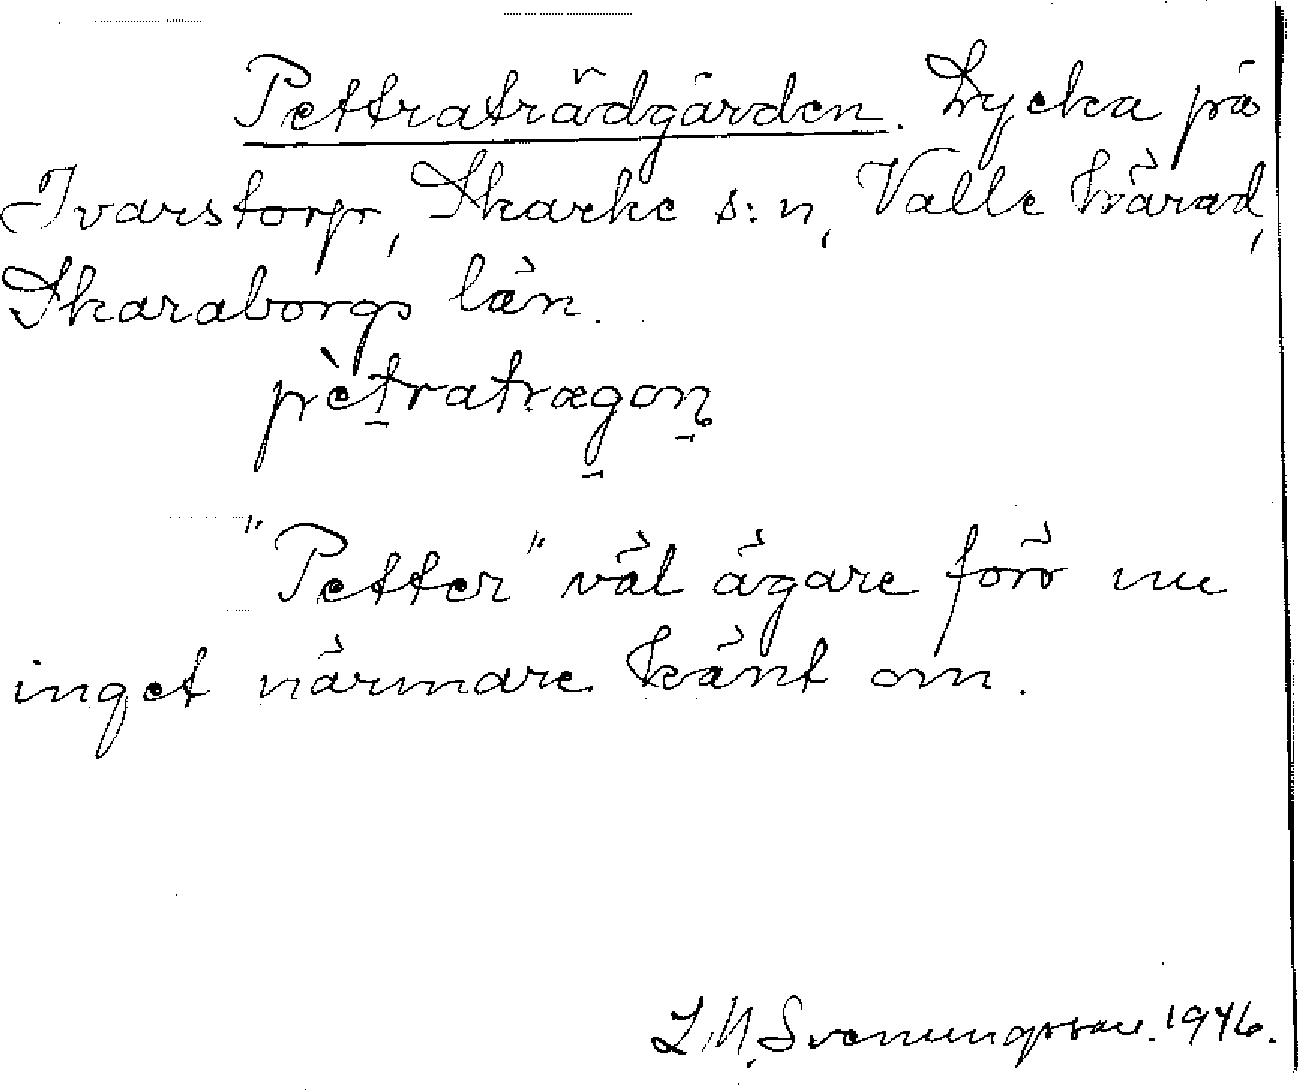 Pettraträdgården. Lycka på
Ivarstorp, Skarke s:n, Valle härad,
Skaraborgs län.
pètratrægon̥
"Petter" väl ägare förr nu
inget närmare känt om.
L. M. Svenungsson. 1946.